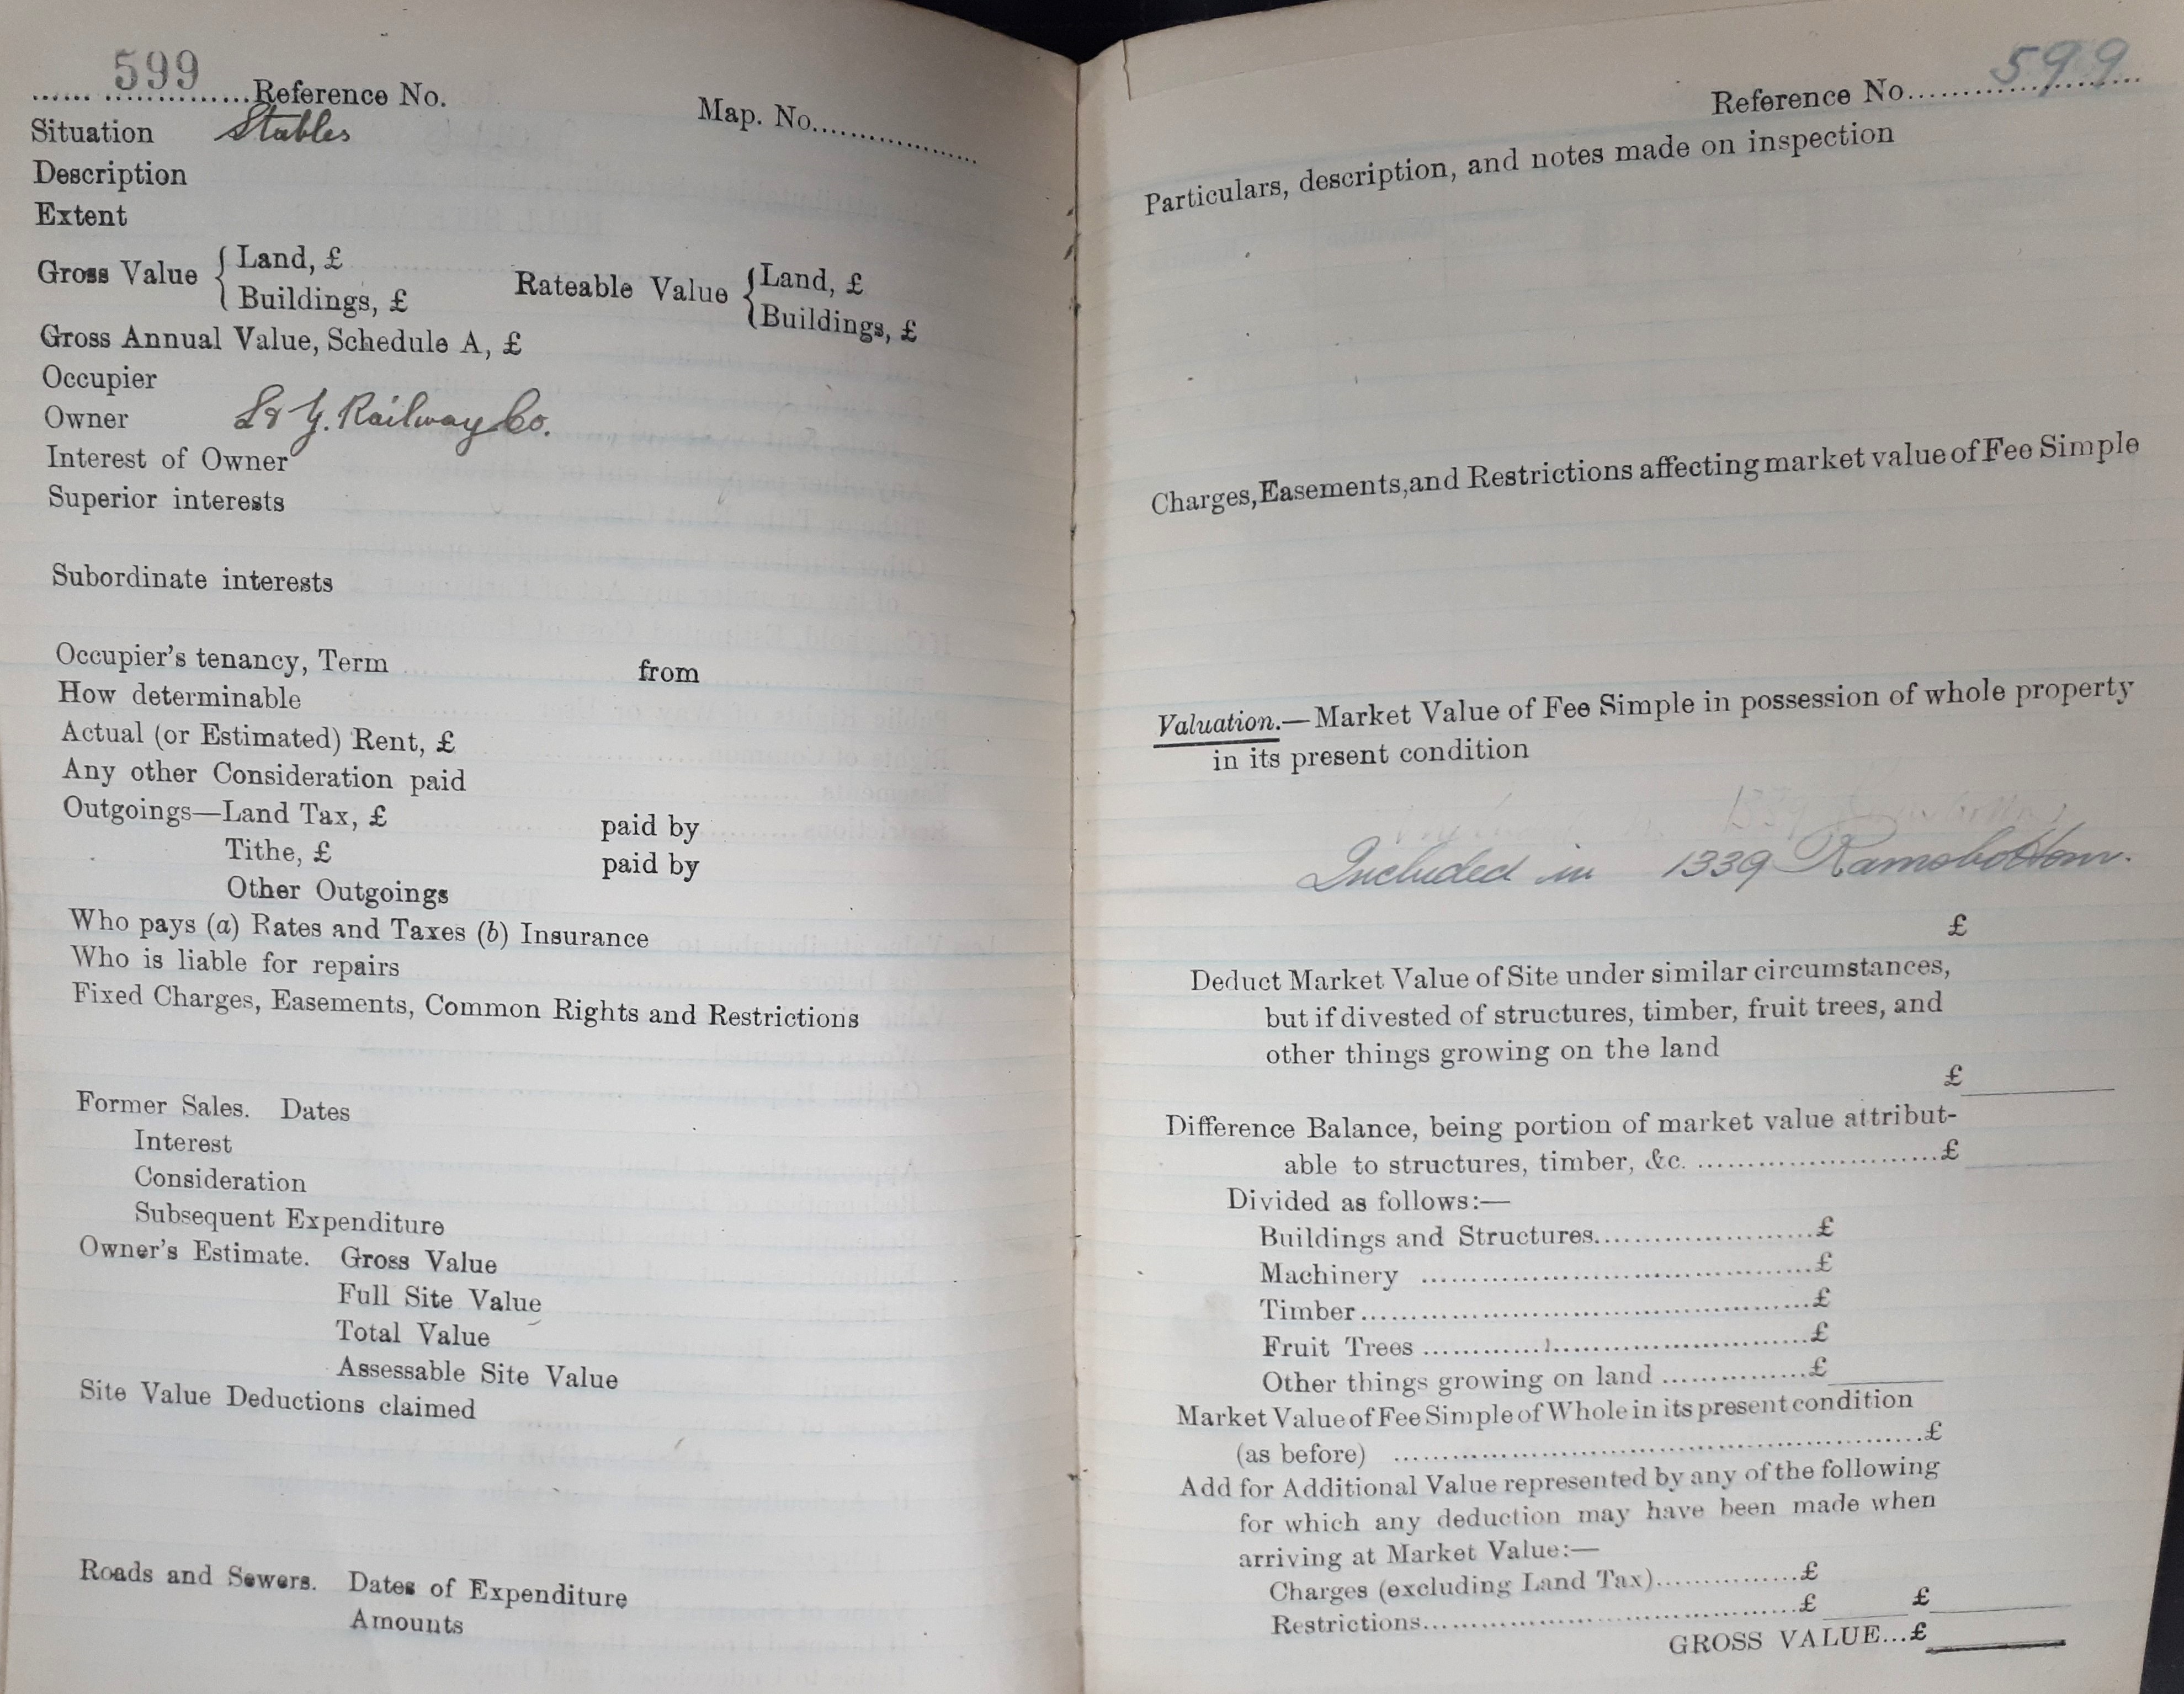 599
...... ..............Reference No.
Map. No..................
Situation Stables
Description
Extent
Gross Value { Land, £
Buildings, £
Rateable Value { Land, £
Buildings, £
Gross Annual Value, Schedule A, £
Occupier
Owner L & Y. Railway Co.
Interest of Owner
Superior interests
Subordinate interests
Occupier's tenancy, Term from
How determinable
Actual (or Estimated) Rent, £
Any other Consideration paid
Outgoings—Land Tax, £ paid by
Tithe, £ paid by
Other Outgoings
Who pays (a) Rates and Taxes (b) Insurance
Who is liable for repairs
Fixed Charges, Easements, Common Rights and Restrictions
Former Sales. Dates
Interest
Consideration
Subsequent Expenditure
Owner's Estimate. Gross Value
Full Site Value
Total Value
Assessable Site Value
Site Value Deductions claimed
Roads and Sewers. Dates of Expenditure
Amounts
Reference No. 599
Particulars, description, and notes made on inspection
Charges, Easements, and Restrictions affecting market value of Fee Simple
Valuation.—Market Value of Fee Simple in possession of whole property
in its present condition
1339
Included in 1339 Ramsbottom.
£
Deduct Market Value of Site under similar circumstances,
but if divested of structures, timber, fruit trees, and
other things growing on the land
£
Difference Balance, being portion of market value attribut-
able to structures, timber, &c. ..........................£
Divided as follows:—
Buildings and Structures.......................£
Machinery .........................................£
Timber................................................£
Fruit Trees .........................................£
Other things growing on land ...............£
Market Value of Fee Simple of Whole in its present condition
(as before) .....................................................£
Add for Additional Value represented by any of the following
for which any deduction may have been made when
arriving at Market Value:—
Charges (excluding Land Tax)...............£
Restrictions........................................£ £
GROSS VALUE...£